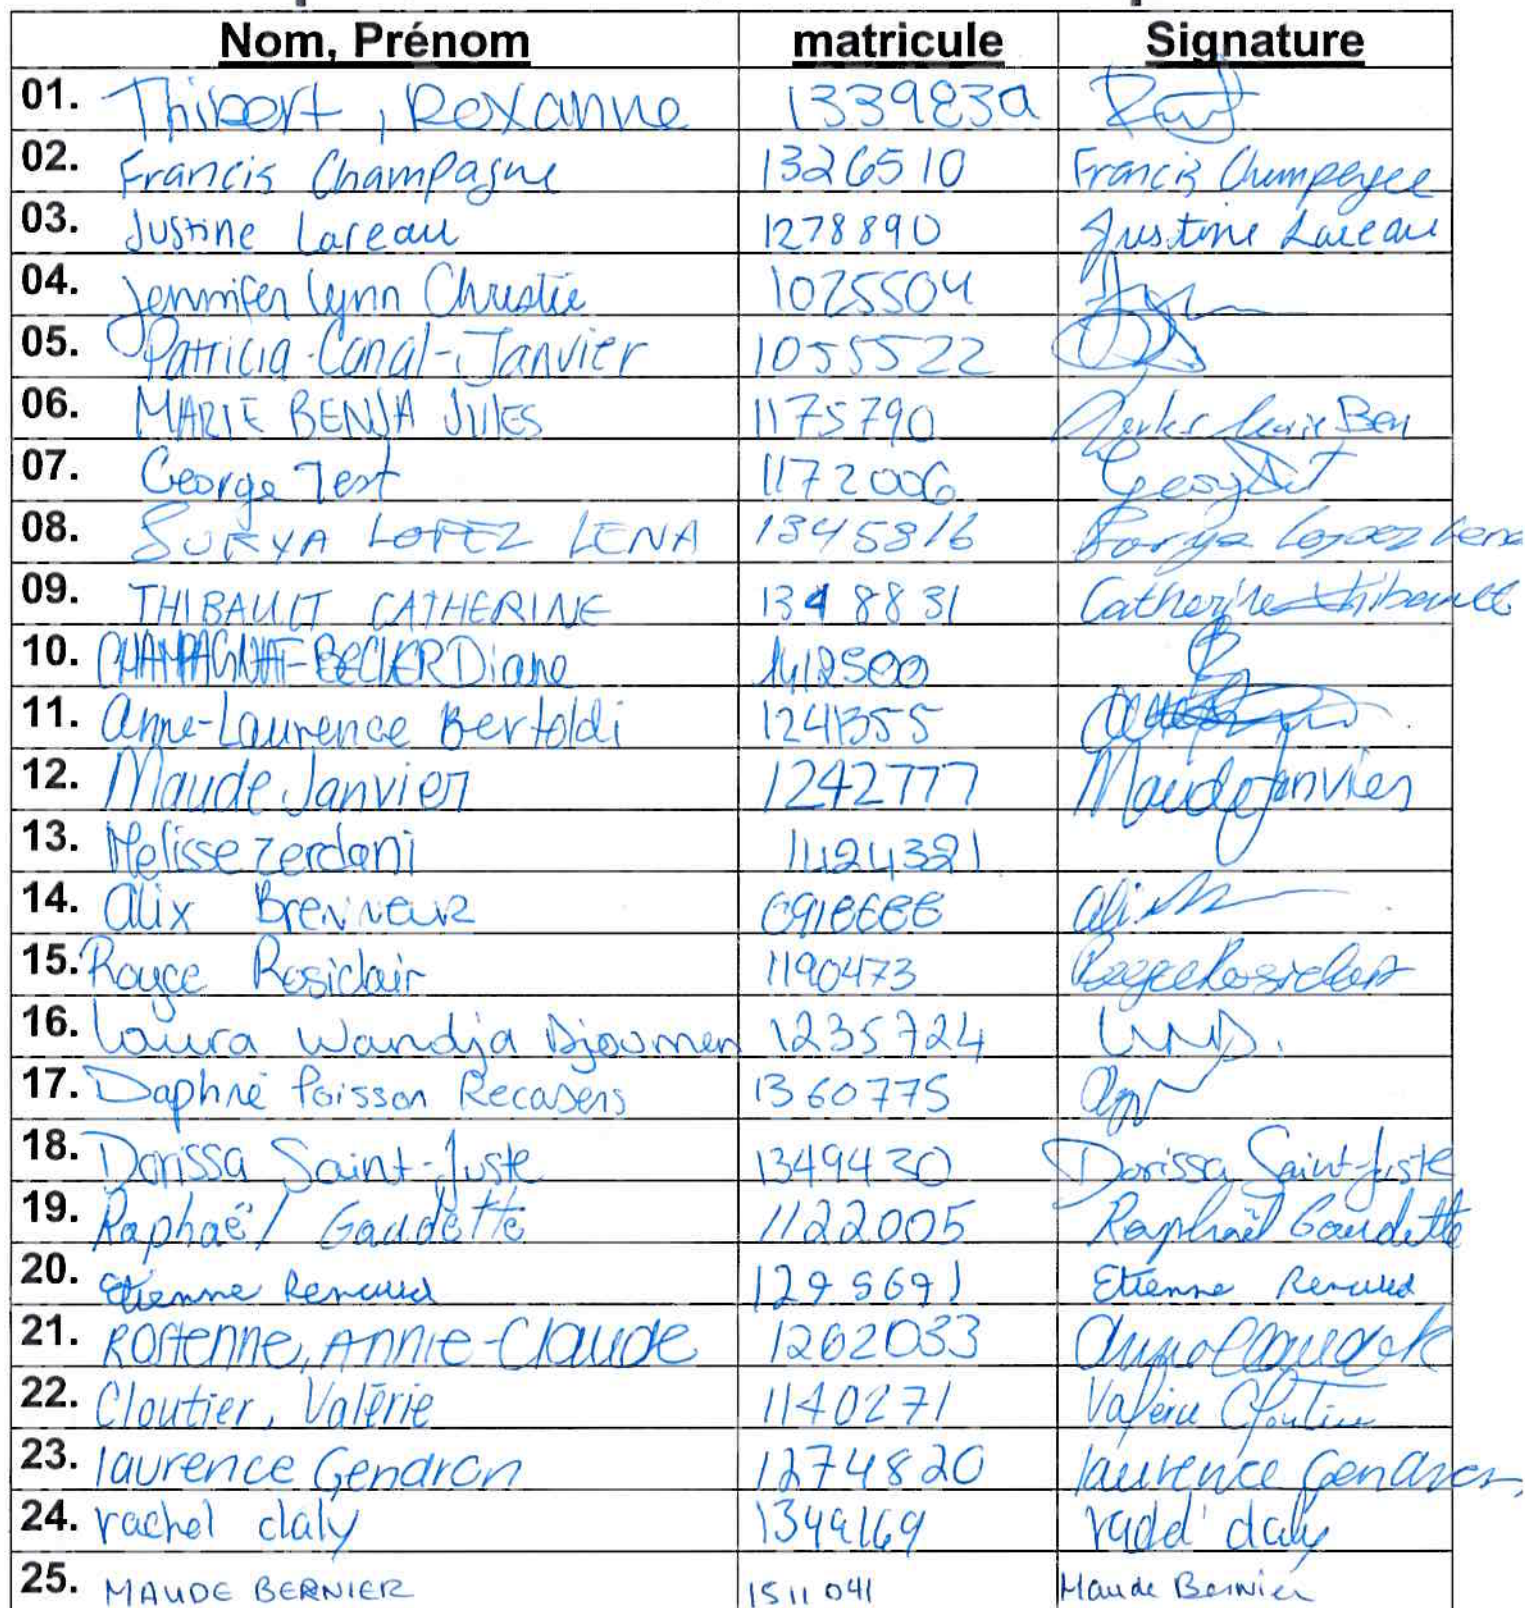 Nom, Prénom matricule Signature
01. Thibert, Roxanne 1339830
02. Francis Champagne 1326510 Francis Champagne
03. Justine Lareau 1278890 Justine Lareau
04. Jennifer Lynn Christie 1025504
05. Patricia Canal-Janvier 1055522
06. MARIE BENJA JULES 1175790 Marie Ben
07. George Test 1172006
08. SURYA LOPEZ LENA 1345816 Lopez Lena
09. THIBAULT CATHERINE 1348831 Catherine Thibault
10. CHAMPAGNAT-BECKER Diane 1412500
11. Anne-Laurence Bertoldi 1241355
12. Maude Janvier 1242777 Maude Janvier
13. Melisse Zerdani 1424321
14. Alix 
15. Rouce Rosiclair 1190473
16. Laura Wandja Djoumen 1235724 LWD.
17. Daphné Poisson Recasens 1360775
18. Dorissa Saint-Juste 1349430 Dorissa Saint-Juste
19. Raphaël Gaudette 1122005 Raphaël Gaudette
20. Etienne Renaud 1295691 Etienne Renaud
21. Rostenne, Annie-Claude 1262033
22. Cloutier, Valérie 1140271 Valérie Cloutier
23. laurence Gendron 1274820 laurence Gendron
24. rachel daly 1349169 rachel daly
25. MAUDE BERNIER 1511041 Maude Bernier